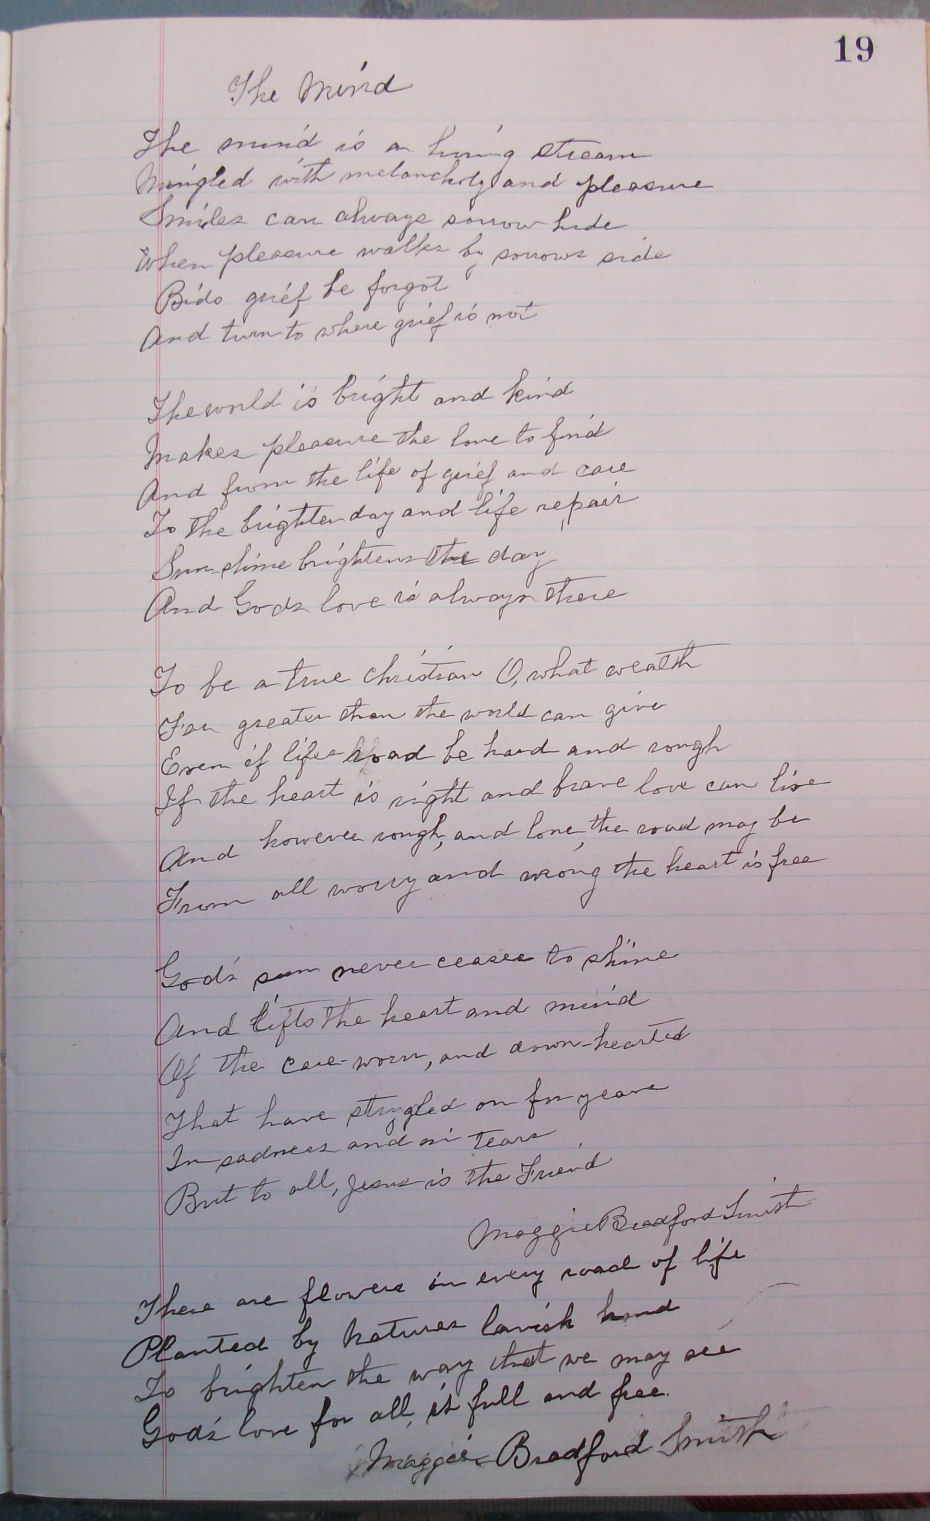 19
The Mind
The mind is a living stream
Mingled with melancholy and pleasure
Smiles can always sorrow hide
When pleasure walks by sorrows side
Bids grief be forgot
And turn to where grief is not
The world is bright and kind
Makes pleasure the love to find
And from the life of grief and care
To the brighter day and life repair
Sun-shine brightens the day
And Gods love is always there
To be a true christian O, what wealth
Far greater than the world can give
Even if lifes road be hard and rough
If the heart is right and brave love can live
And however rough, and lone, the road may be
From all worry and wrong the heart is free
God's sun never ceases to shine
And lifts the heart and mind
Of the care-worn, and down-hearted
That have strugled on for years
In sadness and in tears
But to all, Jesus is the Friend
Maggie Bradford Smith
There are flowers in every road of life
Planted by Natures lavish hand
To brighten the way that we may see
God's love for all, is full and free.
Maggie Bradford Smith